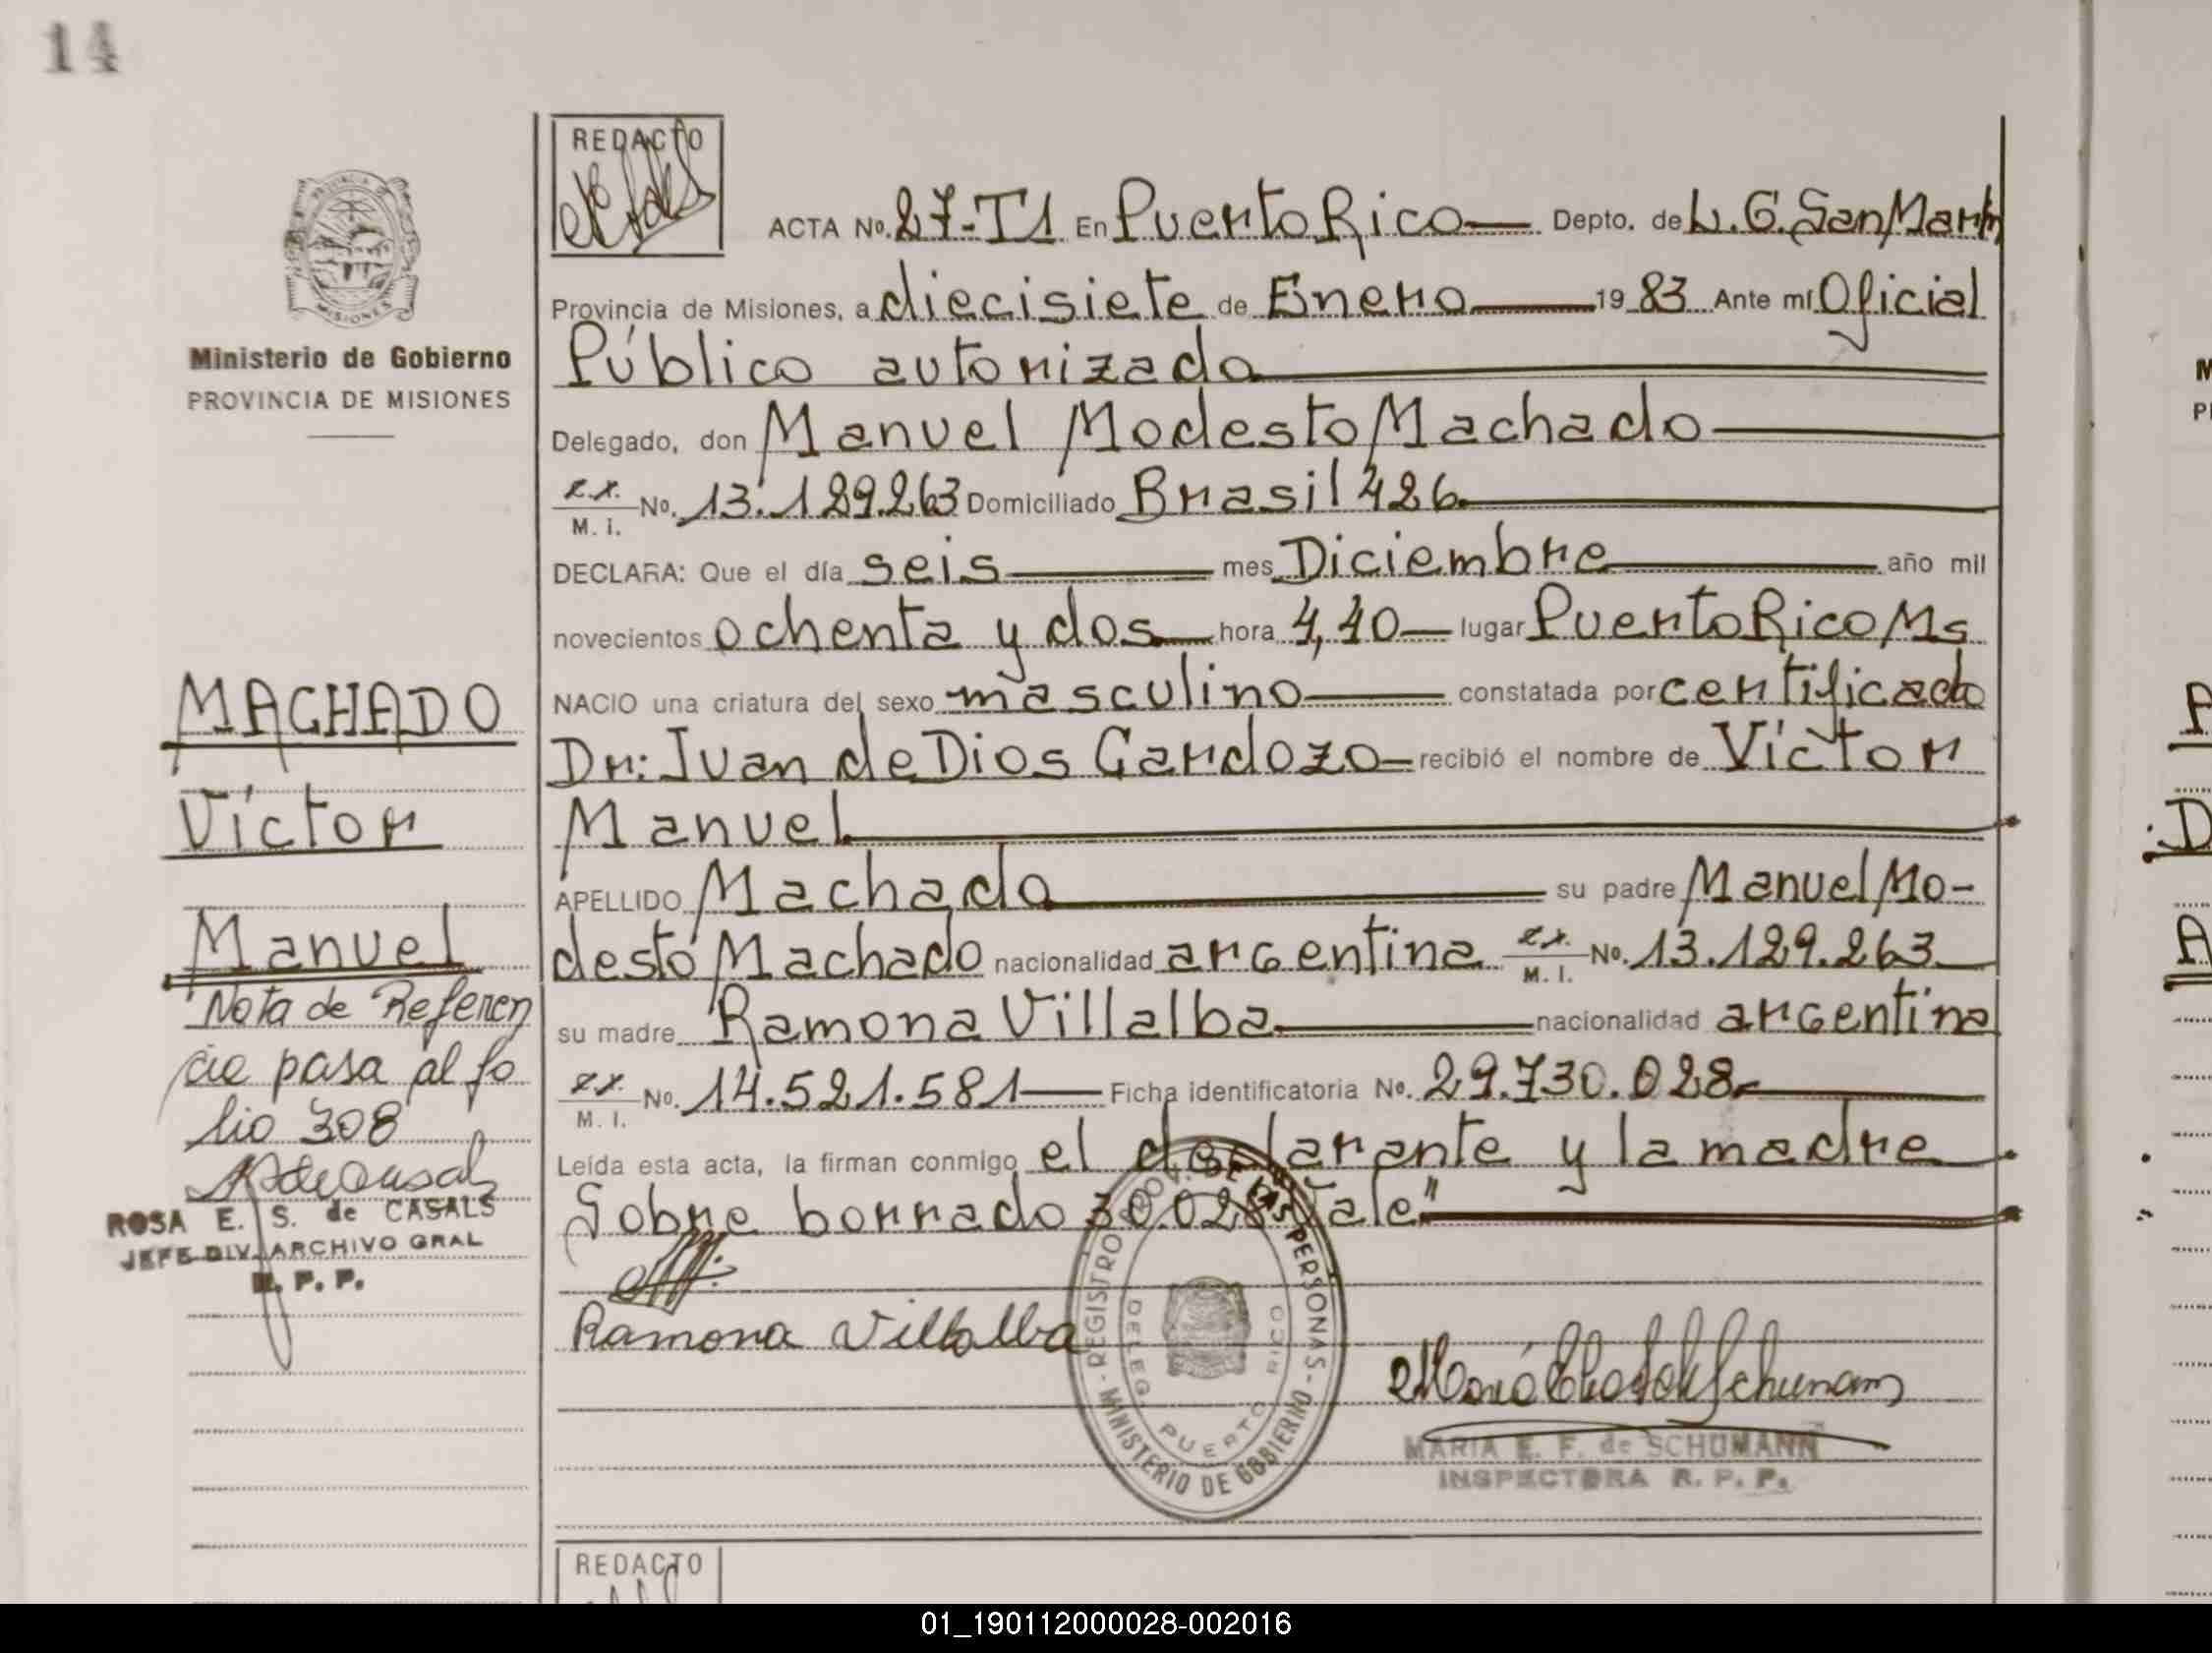 14
REDACTO
ACTA No. 27-T1 En Puerto Rico Depto. de L. G. San Martín
Provincia de Misiones, a diecisiete de Enero 1983 Ante mí Oficial
Público autorizado
Ministerio de Gobierno
PROVINCIA DE MISIONES
Delegado, don Manuel Modesto Machado
M. I. No. 13.129.263 Domiciliado Brasil 426
DECLARA: Que el día seis mes Diciembre año mil
novecientos ochenta y dos hora 4,40 lugar Puerto Rico Ms
NACIO una criatura del sexo masculino constatada por certificado
Dr: Juan de Dios Cardozo recibió el nombre de Víctor
Manuel
APELLIDO Machado su padre Manuel Mo-
desto Machado nacionalidad argentina M. I. No. 13.129.263
su madre Ramona Villalba nacionalidad argentina
M. I. No. 14.521.581 Ficha identificatoria No. 29.730.028
Leída esta acta, la firman conmigo el declarante y la madre
Sobre borrado 30.028 "Vale"
MACHADO
Víctor
Manuel
Nota de Referen
cia pasa al fo
lio 308
ROSA E. S. de CASALS
JEFE DIV. ARCHIVO GRAL
R. P. P.
Ramona Villalba
REGISTRO PROV. DE LAS PERSONAS - MINISTERIO DE GOBIERNO -
DELEG. PUERTO RICO
MARIA E. F. de SCHUMANN
INSPECTORA R. P. P.
REDACTO
01_190112000028-002016